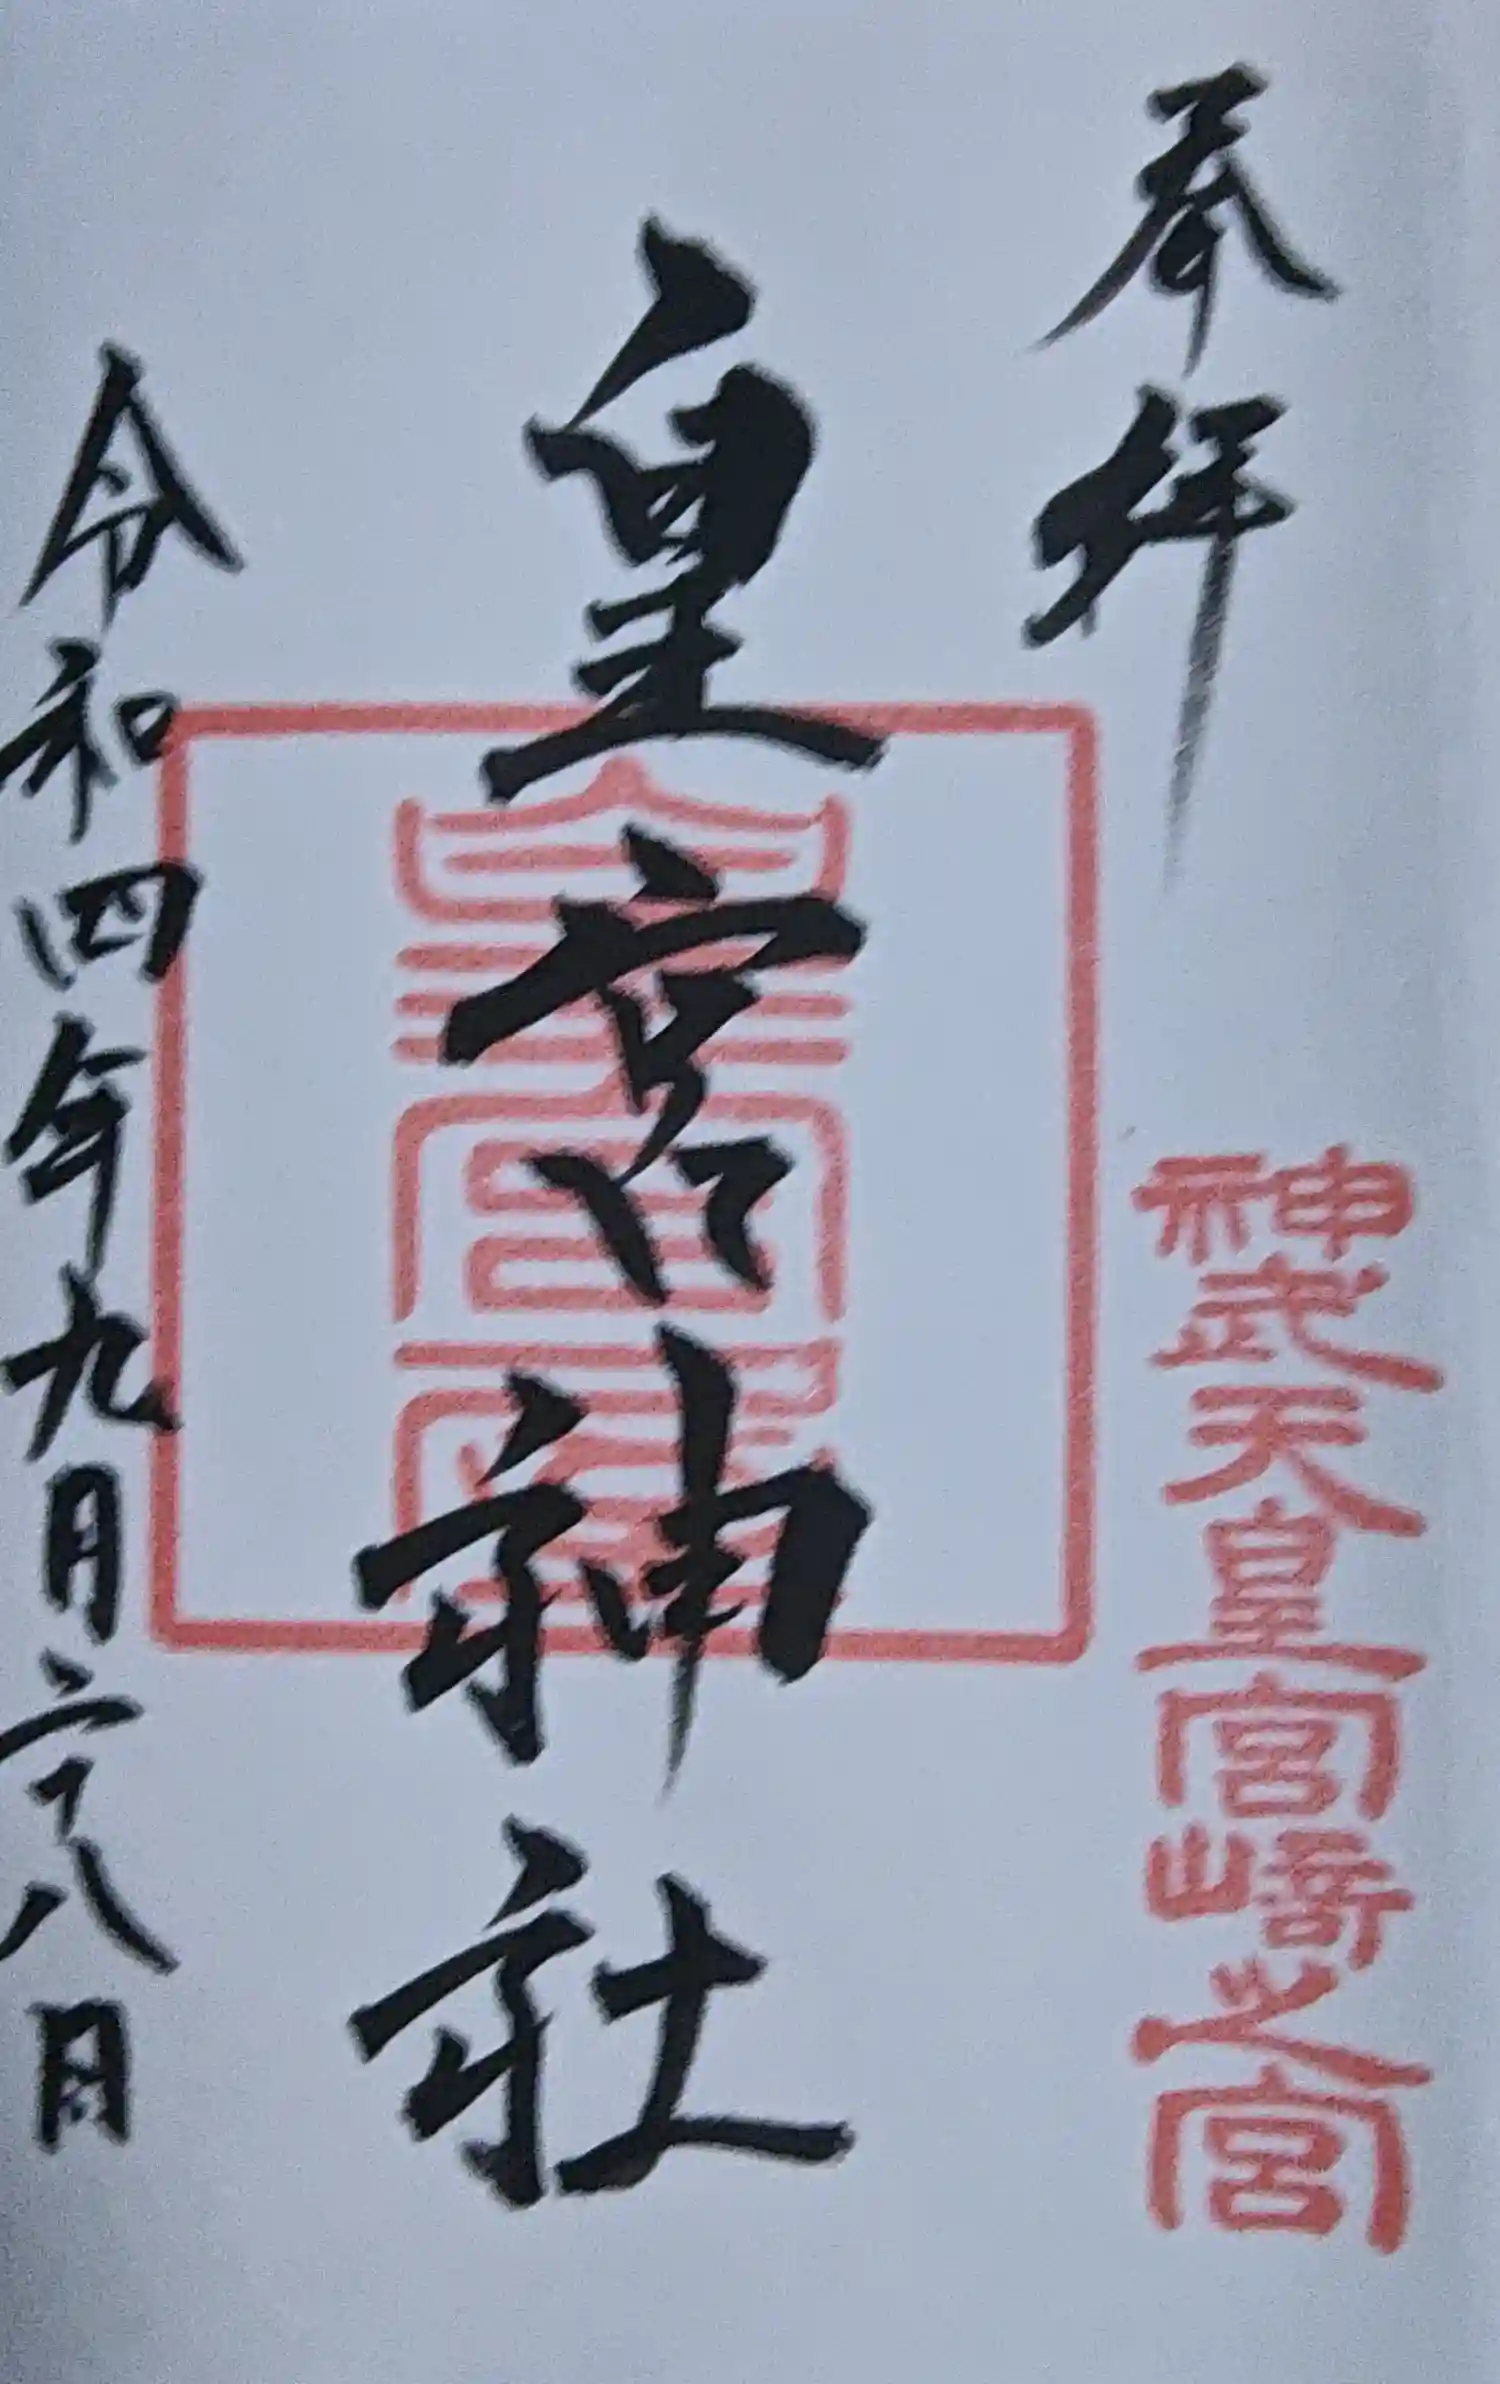 奉拝
神武天皇宮崎之宮
皇宮神社
令和四年九月二十八日